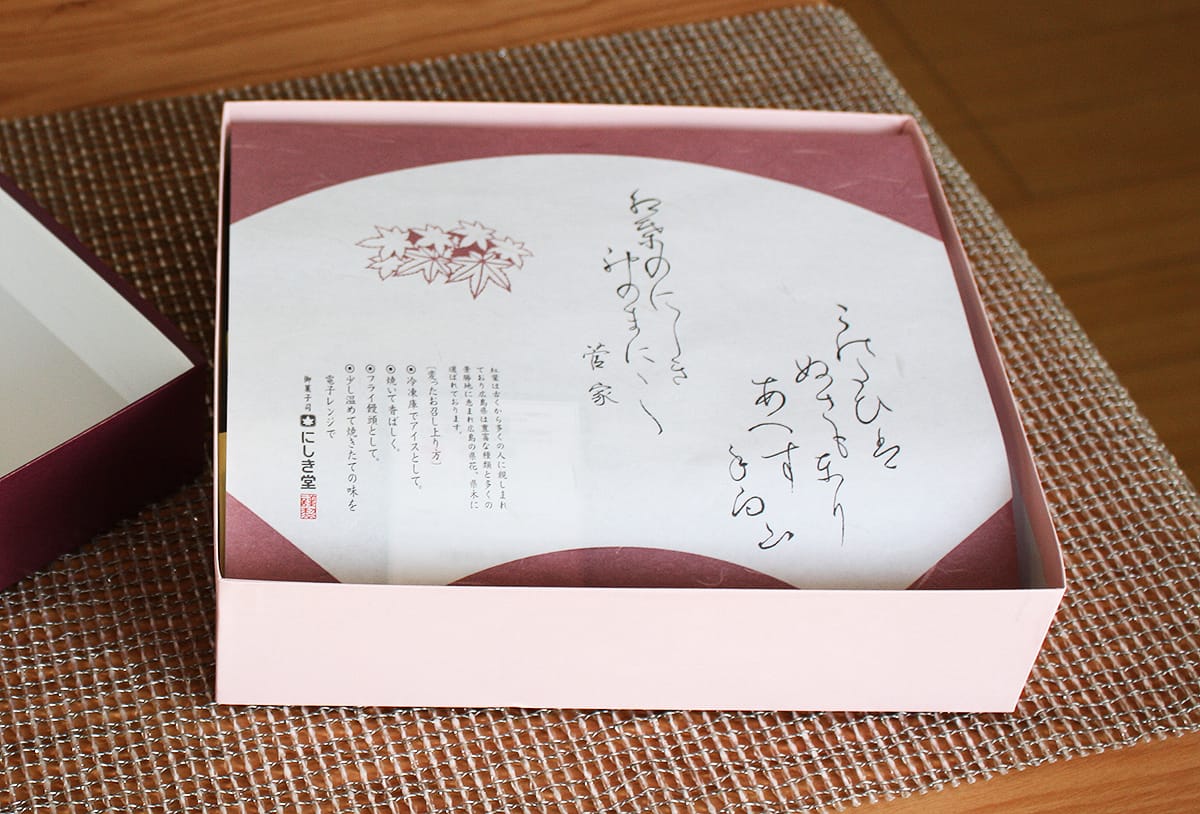 このたひは
ぬさもとり
あへす
手向山
紅葉のにしき
神のまに〳〵
菅家
紅葉は古くから多くの人に親しまれ
ており広島県は豊富な種類と多くの
景勝地に恵まれ広島の県花、県木に
選ばれております。
〔変ったお召し上り方〕
◉冷凍庫でアイスとして。
◉焼いて香ばしく。
◉フライ饅頭として。
◉少し温めて焼きたての味を
電子レンジで
御菓子司 にしき堂